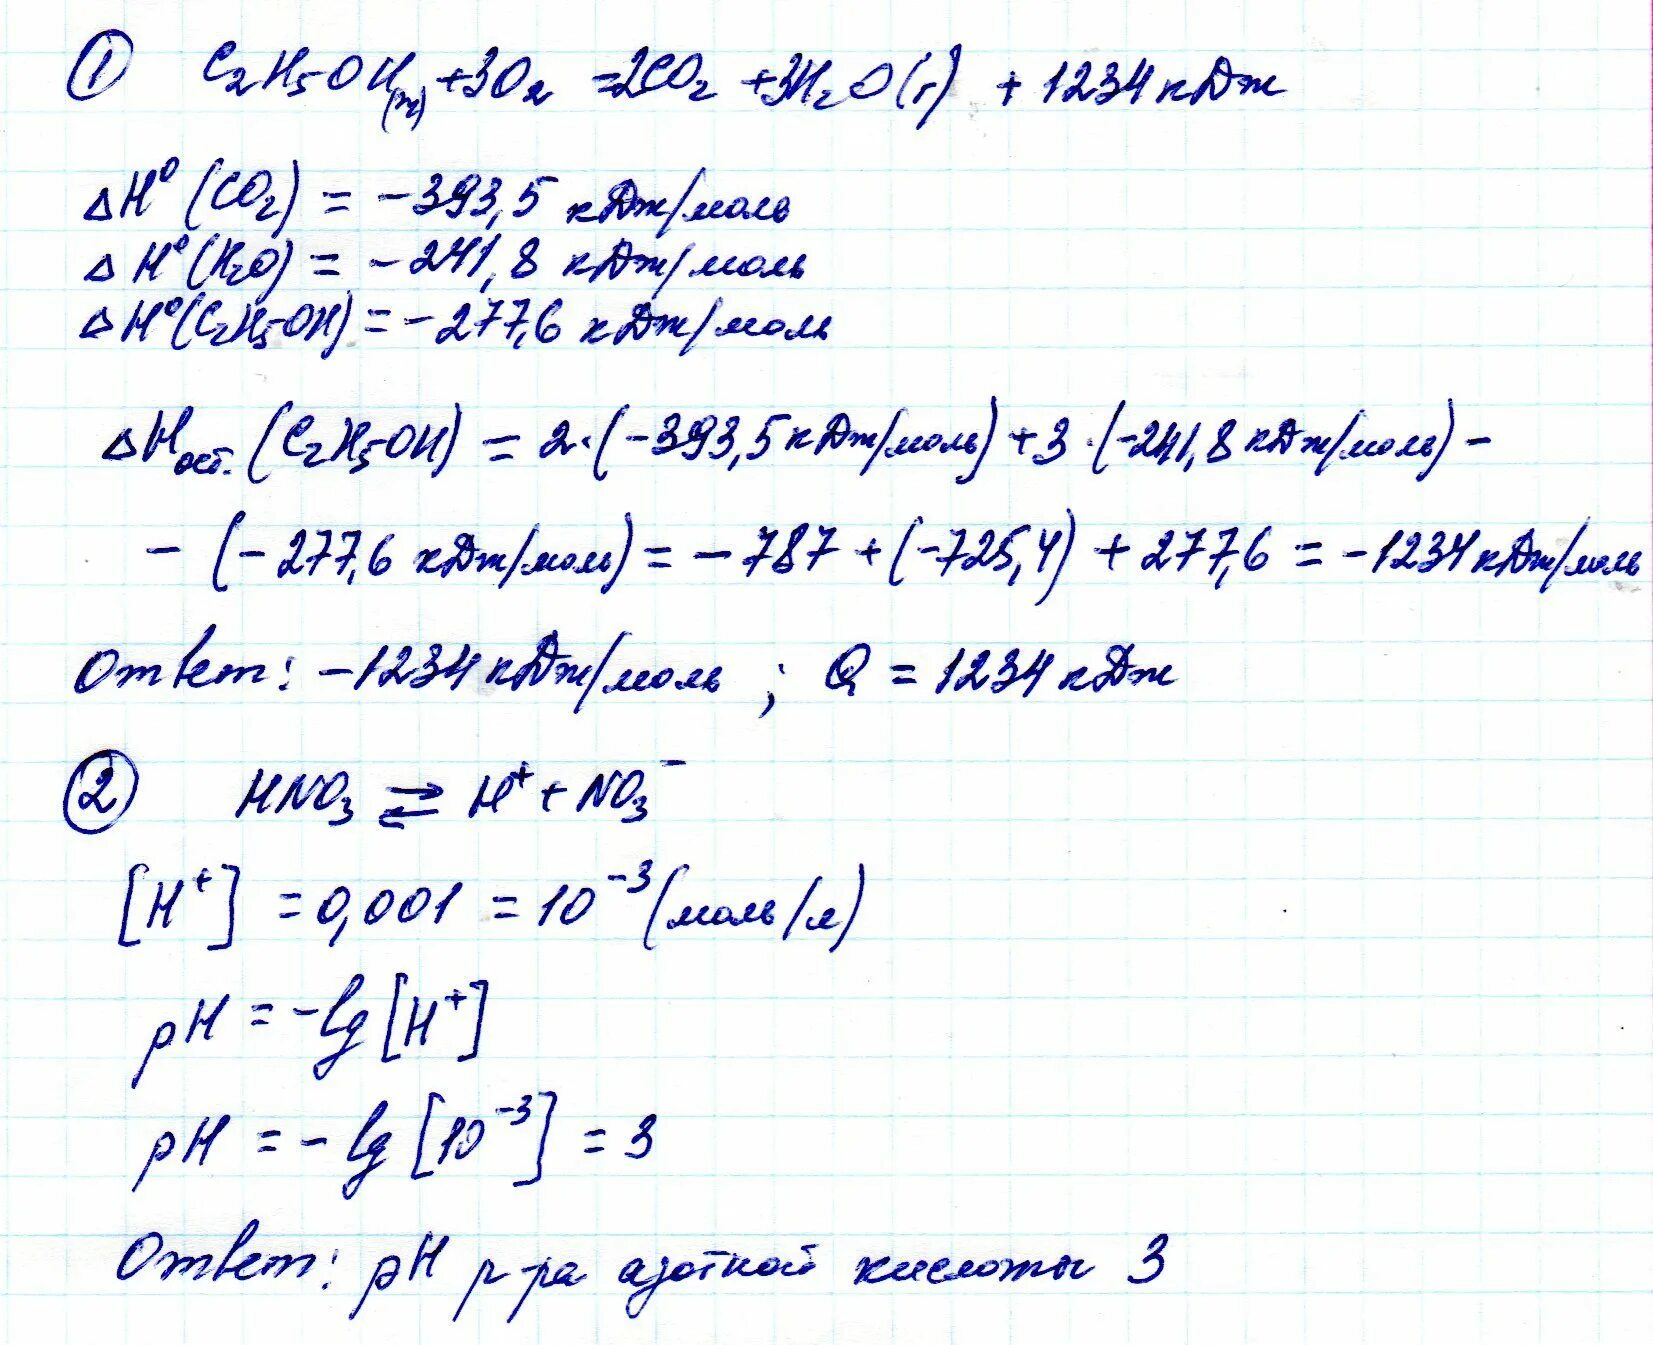 ① C₂H₅OH(ж) + 3O₂ = 2CO₂ + 3H₂O(г) + 1234 кДж
ΔH⁰ (CO₂) = -393,5 кДж/моль
ΔH⁰ (H₂O) = -241,8 кДж/моль
ΔH⁰ (C₂H₅OH) = -277,6 кДж/моль
ΔH (C₂H₅OH) = 2·(-393,5 кДж/моль) + 3·(-241,8 кДж/моль) -
- (-277,6 кДж/моль) = -787 + (-725,4) + 277,6 = -1234 кДж/моль
Ответ: -1234 кДж/моль ; Q = 1234 кДж
② HNO₃ ⇄ H⁺ + NO₃⁻
[H⁺] = 0,001 = 10⁻³ (моль/л)
pH = -lg [H⁺]
pH = - lg [10⁻³] = 3
Ответ: pH р-ра азотной кислоты 3